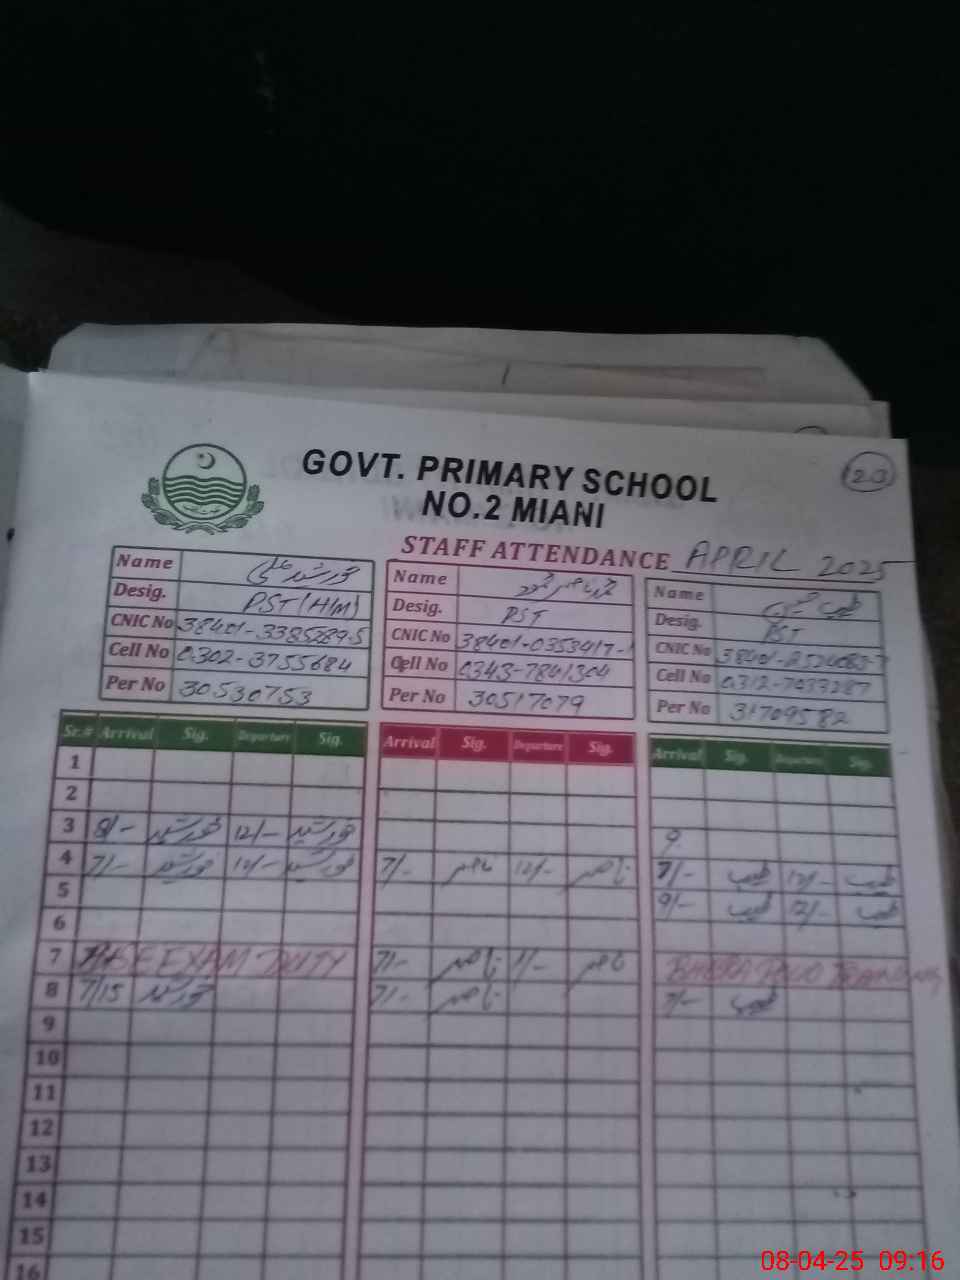 GOVT. PRIMARY SCHOOL
NO.2 MIANI
STAFF ATTENDANCE APRIL 2025
Name خورشید علی
Desig. PST (H/M)
CNIC No 38401-3385289-5
Cell No 0302-3755684
Per No 30530753
Name
Desig. PST
CNIC No 38401-0353417-1
Cell No 0343-7841304
Per No 30517079
Name طیب
Desig. PST
CNIC No
Cell No 0312-7033287
Per No 31709582
Sr.# Arrival Sig. Departure Sig. Arrival Sig. Departure Sig. Arrival Sig. Departure Sig.
1
2
3 8/- خورشید 12/- خورشید 9
4 7/- خورشید 12/- خورشید 7/- ناصر 12/- ناصر 7/- طیب 12/- طیب
5 9/- طیب 12/- طیب
6
7 EXAM DUTY 7/- ناصر 1/- ناصر
8 7/15 خورشید 7/- ناصر 7/- طیب
9
10
11
12
13
14
15
16
08-04-25 09:16